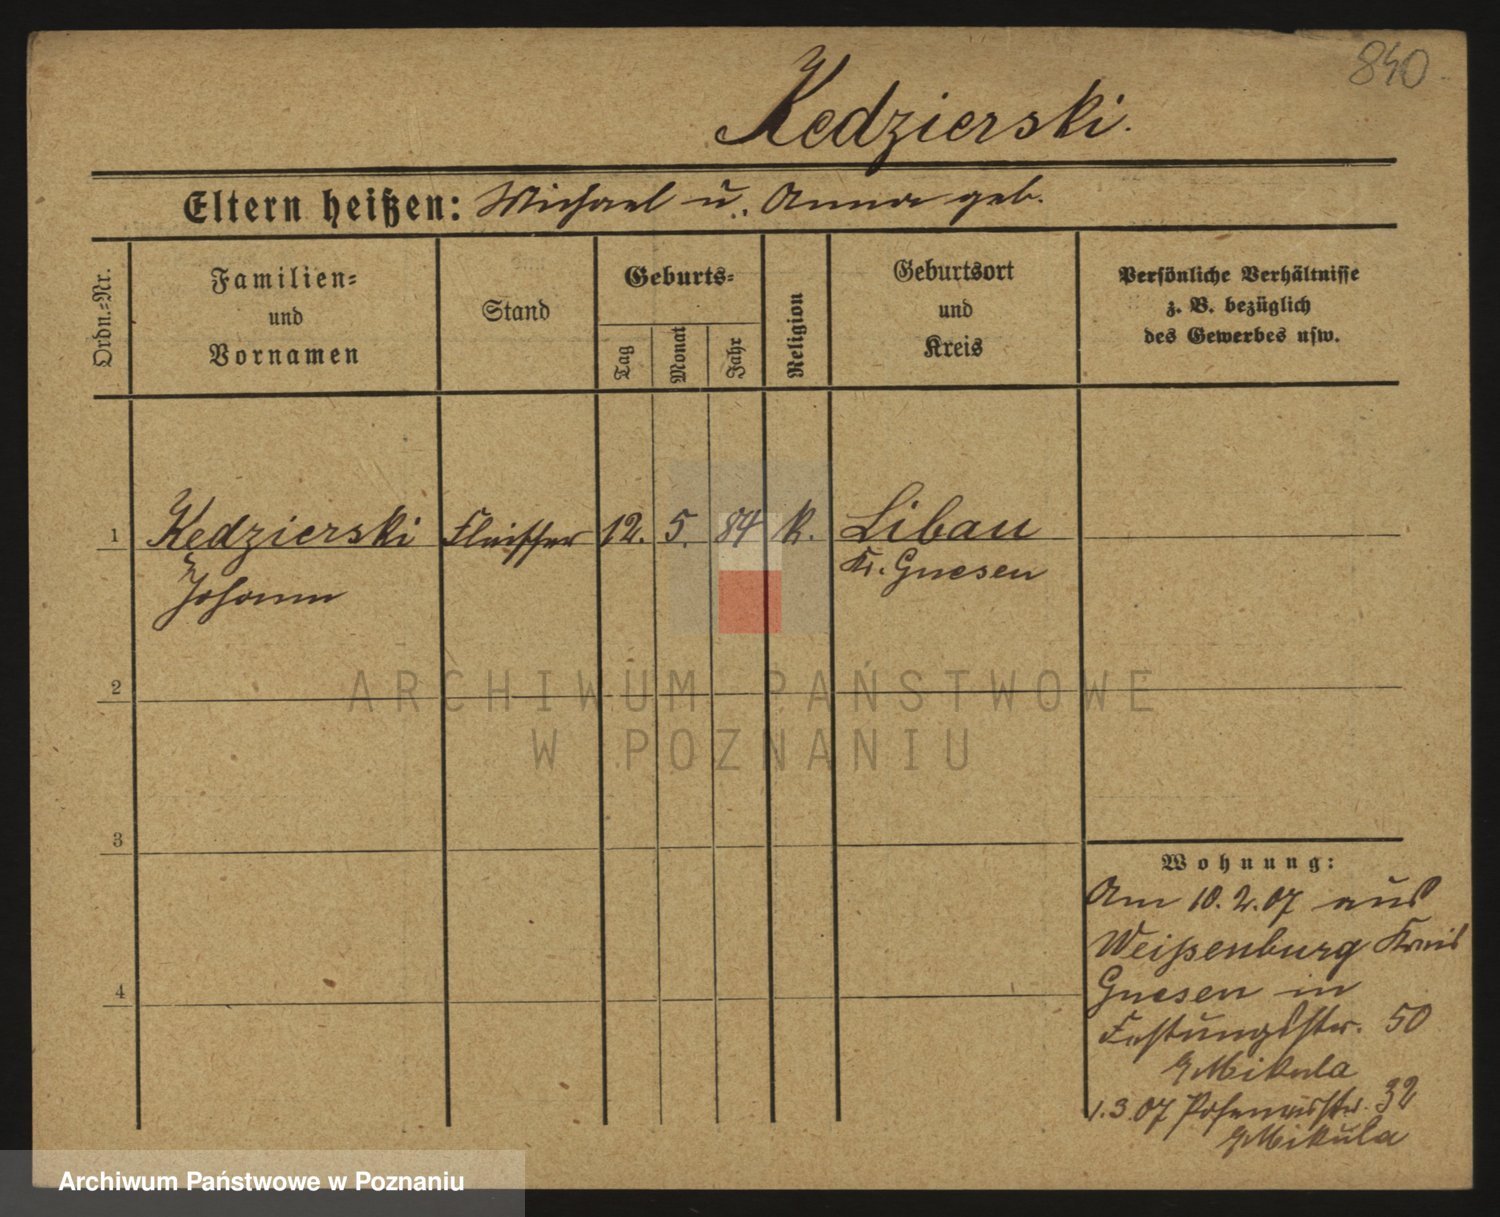 840
Kedzierski.
Eltern heißen: Michael u. Anna geb.
Ordn.-Nr.
Familien- und Vornamen
Stand
Geburts-
Tag
Monat
Jahr
Religion
Geburtsort und Kreis
Persönliche Verhältnisse
z. B. bezüglich
des Gewerbes usw.
1 Kędzierski Fleischer 12. 5. 84 k. Libau
Johann Kr. Gnesen
ARCHIWUM PAŃSTWOWE
W POZNANIU
2
3
4
Wohnung:
Am 10.2.07 aus
Weißenburg Kreis
Gnesen in
Festungsstr. 50
Mikula
1.3.07 Posenerstr. 32
Mikula
Archiwum Państwowe w Poznaniu